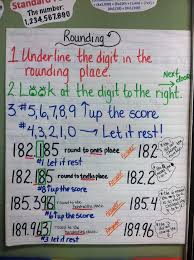 Standard
The number:
1,234,567.890
Rounding
1 Underline the digit in the
rounding place.
Next
2 Look at the digit to the right.
3 #5,6,7,8,9 ↑up the score
#4,3,2,1,0 → Let it rest!
182.185 round to ones place 182.
#1 let it rest
182.185 round to tenths place 182.2
#8 up the score
185.396 round to the hundredths place 185.4
#6 up the score
189.963 round to the hundredths place 189.96
#3 let it rest